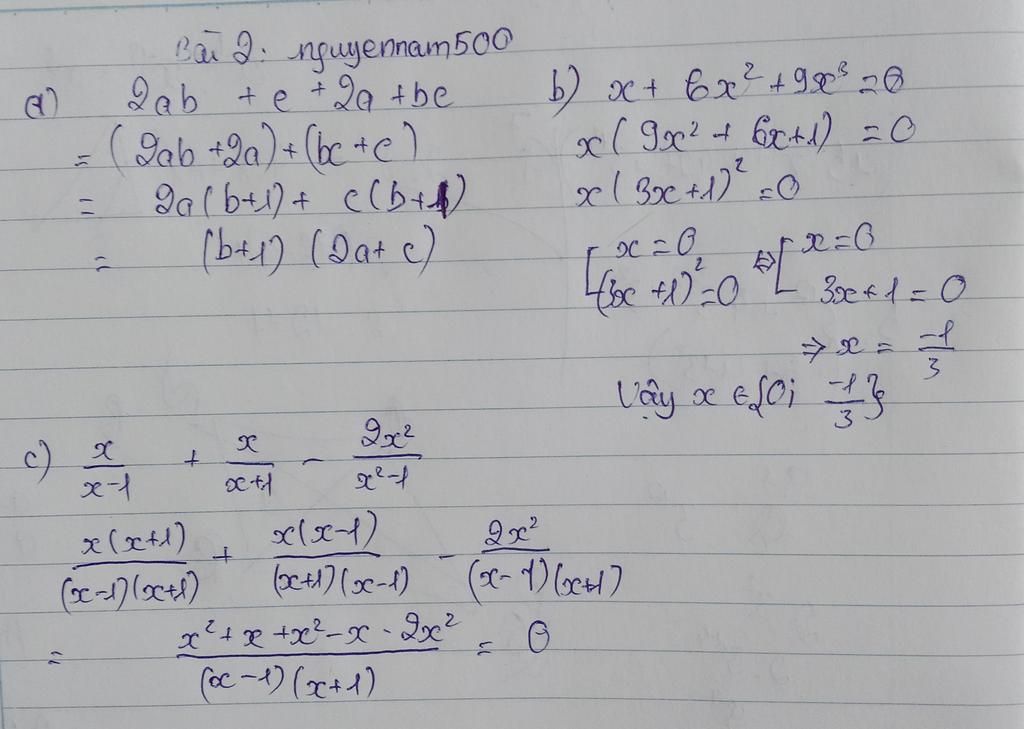 Bài 2: nguyennam500
a) 2ab + c + 2a + bc
= (2ab + 2a) + (bc + c)
= 2a(b+1) + c(b+1)
= (b+1) (2a + c)
b) x + 6x² + 9x³ = 0
x(9x² + 6x + 1) = 0
x(3x+1)² = 0
[ x = 0 ⇔ [ x = 0
(3x + 1)² = 0 3x + 1 = 0
⇒ x = -1/3
Vậy x ∈ {0; -1/3}
c) x/(x-1) + x/(x+1) - 2x²/(x²-1)
x(x+1)/(x-1)(x+1) + x(x-1)/(x+1)(x-1) - 2x²/(x-1)(x+1)
= x² + x + x² - x - 2x²/(x-1)(x+1) = 0